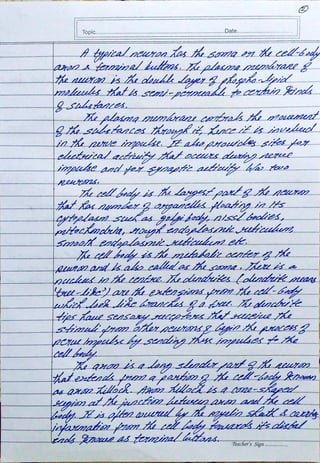 5
Topic
Date
A typical neuron has the soma or the cell-body
axon & terminal buttons. The plasma membrane of
the neuron is the double layer of phospho-lipid
molecules that is semi-permeable to certain kinds
of substances.
The plasma membrane controls the movement
of the substances through it, hence it is involved
in the nerve impulse. It also provides sites for
electrical activity that occurs during nerve
impulse and for synaptic activity b/w two
neurons.
The cell body is the largest part of the neuron
that has number of organelles floating in its
cytoplasm such as golgi body, nissl bodies,
mitochondria, rough endoplasmic reticulum,
smooth endoplasmic reticulum etc.
The cell body is the metabolic center of the
neuron and is also called as the soma. There is a
nucleus in the centre. The dendrites (dendrite means
'tree-like') are the extensions from the cell-body
which look like branches of a tree. The dendrite
tips have sensory receptors that receive the
stimuli from other neurons & begin the process of
nerve impulse by sending these impulses to the
cell body.
The axon is a long slender part of the neuron
that extends from a portion of the cell-body known
as axon hillock. Axon hillock is a cone-shaped
region at the junction between axon and the cell
body. It is often covered by the myelin sheath & carries
information from the cell body towards its distal
ends known as terminal buttons.
Teacher's Sign